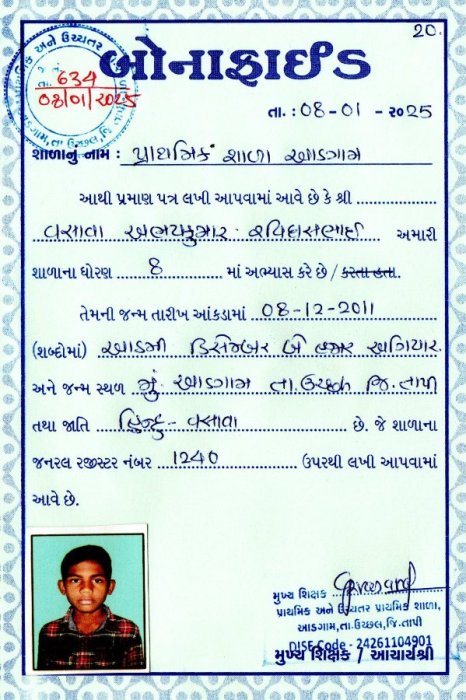 20.
બોનાફાઈડ
634
08/01/2025
તા. : 08-01 - ૨૦25
શાળાનું નામ : પ્રાથમિક શાળા આડગામ
આથી પ્રમાણ પત્ર લખી આપવામાં આવે છે કે શ્રી
વસાવા અભયકુમાર રવિદાસભાઈ અમારી
શાળાના ધોરણ 8 માં અભ્યાસ કરે છે / કરતા હતા.
તેમની જન્મ તારીખ આંકડામાં 08-12-2011
(શબ્દોમાં) આઠમી ડિસેમ્બર બે હજાર અગિયાર
અને જન્મ સ્થળ મું. આડગામ તા. ઉચ્છલ જિ. તાપી
તથા જાતિ હિન્દુ - વસાવા છે. જે શાળાના
જનરલ રજીસ્ટર નંબર 1240 ઉપરથી લખી આપવામાં
આવે છે.
મુખ્ય શિક્ષક
પ્રાથમિક અને ઉચ્ચતર પ્રાથમિક શાળા,
આડગામ,તા.ઉચ્છલ,જિ.તાપી
DISE Code - 24261104901
મુખ્ય શિક્ષક / આચાર્યશ્રી